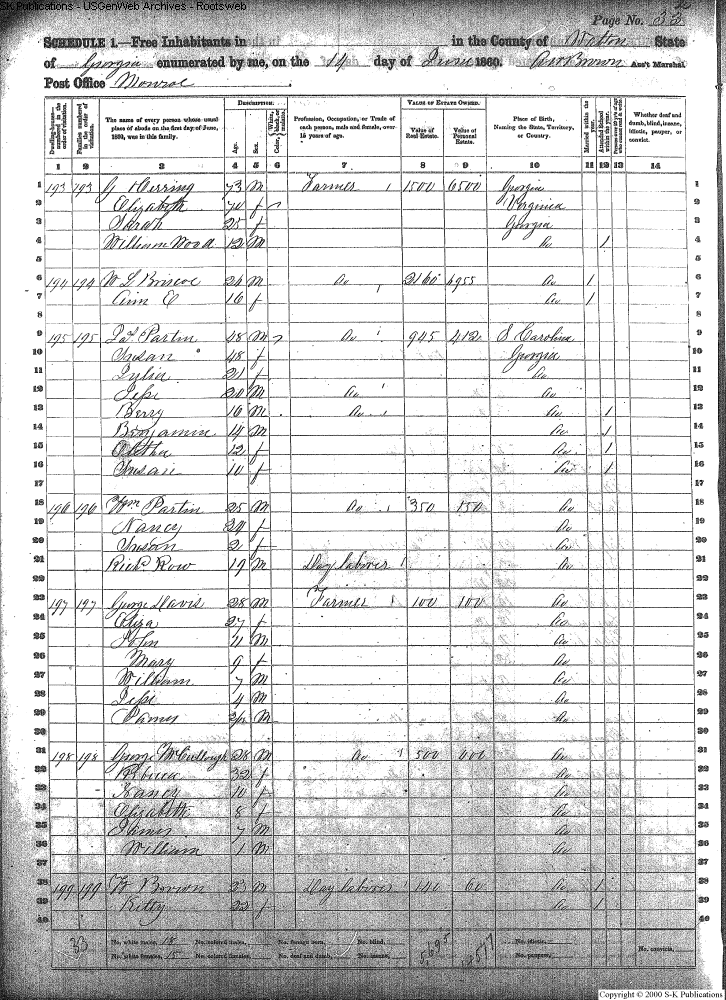 S-K Publications - USGenWeb Archives - Rootsweb
Page No. 33
SCHEDULE 1.—Free Inhabitants in in the County of Walton State
of Georgia enumerated by me, on the 14 day of June 1860. Brown Ass't Marshal
Post Office Monroe
Dwelling-houses—numbered in the order of visitation.
Families numbered in the order of visitation.
The name of every person whose usual place of abode on the first day of June, 1860, was in this family.
DESCRIPTION.
Age.
Sex.
Color, White, black, or mulatto.
Profession, Occupation, or Trade of each person, male and female, over 15 years of age.
VALUE OF ESTATE OWNED.
Value of Real Estate.
Value of Personal Estate.
Place of Birth, Naming the State, Territory, or Country.
Married within the year.
Attended School within the year.
Whether deaf and dumb, blind, insane, idiotic, pauper, or convict.
1 2 3 4 5 6 7 8 9 10 11 12 13 14
1 193 193 G Herring 73 M Farmer 1500 6500 Georgia 1
2 Elizabeth 70 f Virginia 2
3 Sarah 25 f Georgia 3
4 William Wood 12 M Do 1 4
5 5
6 194 194 W L Briscoe 24 M Do 2160 6955 Do 1 6
7 Ann E 16 f Do 1 7
8 8
9 195 195 Jas Partin 48 M Do 945 412 S Carolina 9
10 Susan 48 f Georgia 10
11 21 f Do 11
12 Jesse 20 M Do Do 12
13 Berry 16 M Do Do 1 13
14 Benjamin 14 M Do 1 14
15 12 f Do 1 15
16 Susan 10 f Do 1 16
17 17
18 196 196 Wm Partin 25 M Do 350 150 Do 18
19 Nancy 24 f Do 19
20 Susan 2 f Do 20
21 Richd Row 19 M Day laborer Do 21
22 22
23 197 197 George Davis 28 M Farmer 100 100 Do 23
24 Eliza 27 f Do 24
25 John 11 M Do 25
26 Mary 9 f Do 26
27 William 7 M Do 27
28 Jesse 4 M Do 28
29 James M Do 29
30 30
31 198 198 George McCullough 28 M Do 500 400 Do 31
32 32 f Do 32
33 Nancy 10 f Do 33
34 Elizabeth 8 f Do 34
35 James 7 M Do 35
36 William 1 M Do 36
37 37
38 199 199 Brown 23 M Day laborer 140 60 Do 1 38
39 Kitty 22 f Do 1 39
40 40
33 No. white males, 18 No. colored males, No. foreign born, No. blind, No. idiotic, No. convicts,
No. white females, 15 No. colored females, No. deaf and dumb, No. insane, 5,695 No. paupers,
Copyright © 2000 S-K Publications